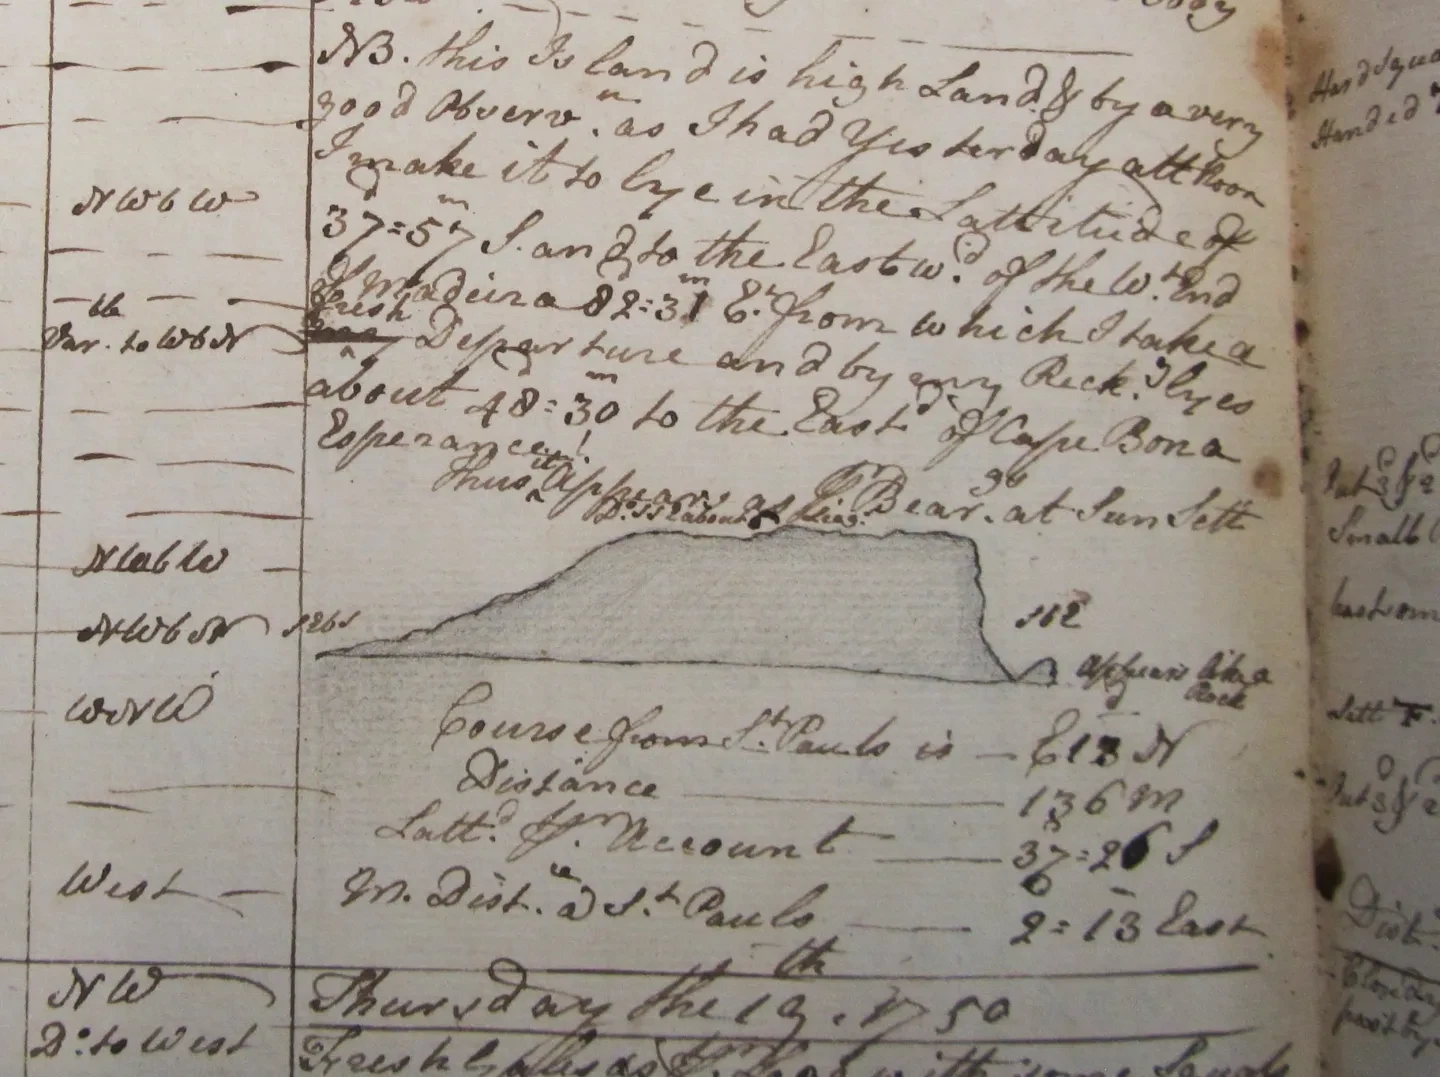 NB. this Island is high Land & by a very
good Observn. as I had Yesterday att Noon
I make it to lye in the Lattitude of
37d=57m S. and to the Eastwd. of the Wt. End
of Madeira 82d=31m Et. from which I take a
Fresh
Departure and by my Reckg. lyes
about 48d=30m to the Eastd. of Cape Bona
Esperance!
Thus it Appears as pr. Bearg. at Sun Sett
Do. about 6 Leag.
S26
S62
Appears like a
Rock
Course from St. Pauls is — E 13 N
Distance — 136 M
Lattd. pr. Account — 37d=26 S
M. Distce. a St. Pauls — 2=13 East
Thursday the 19th. 1750
Fresh Gales with some Squals
NWbW
Var. to WbN
NWbW
NWbN
WNW
West
NW
Do. to West
Hard Squa
Handed
Small
Sett F.
Dist.